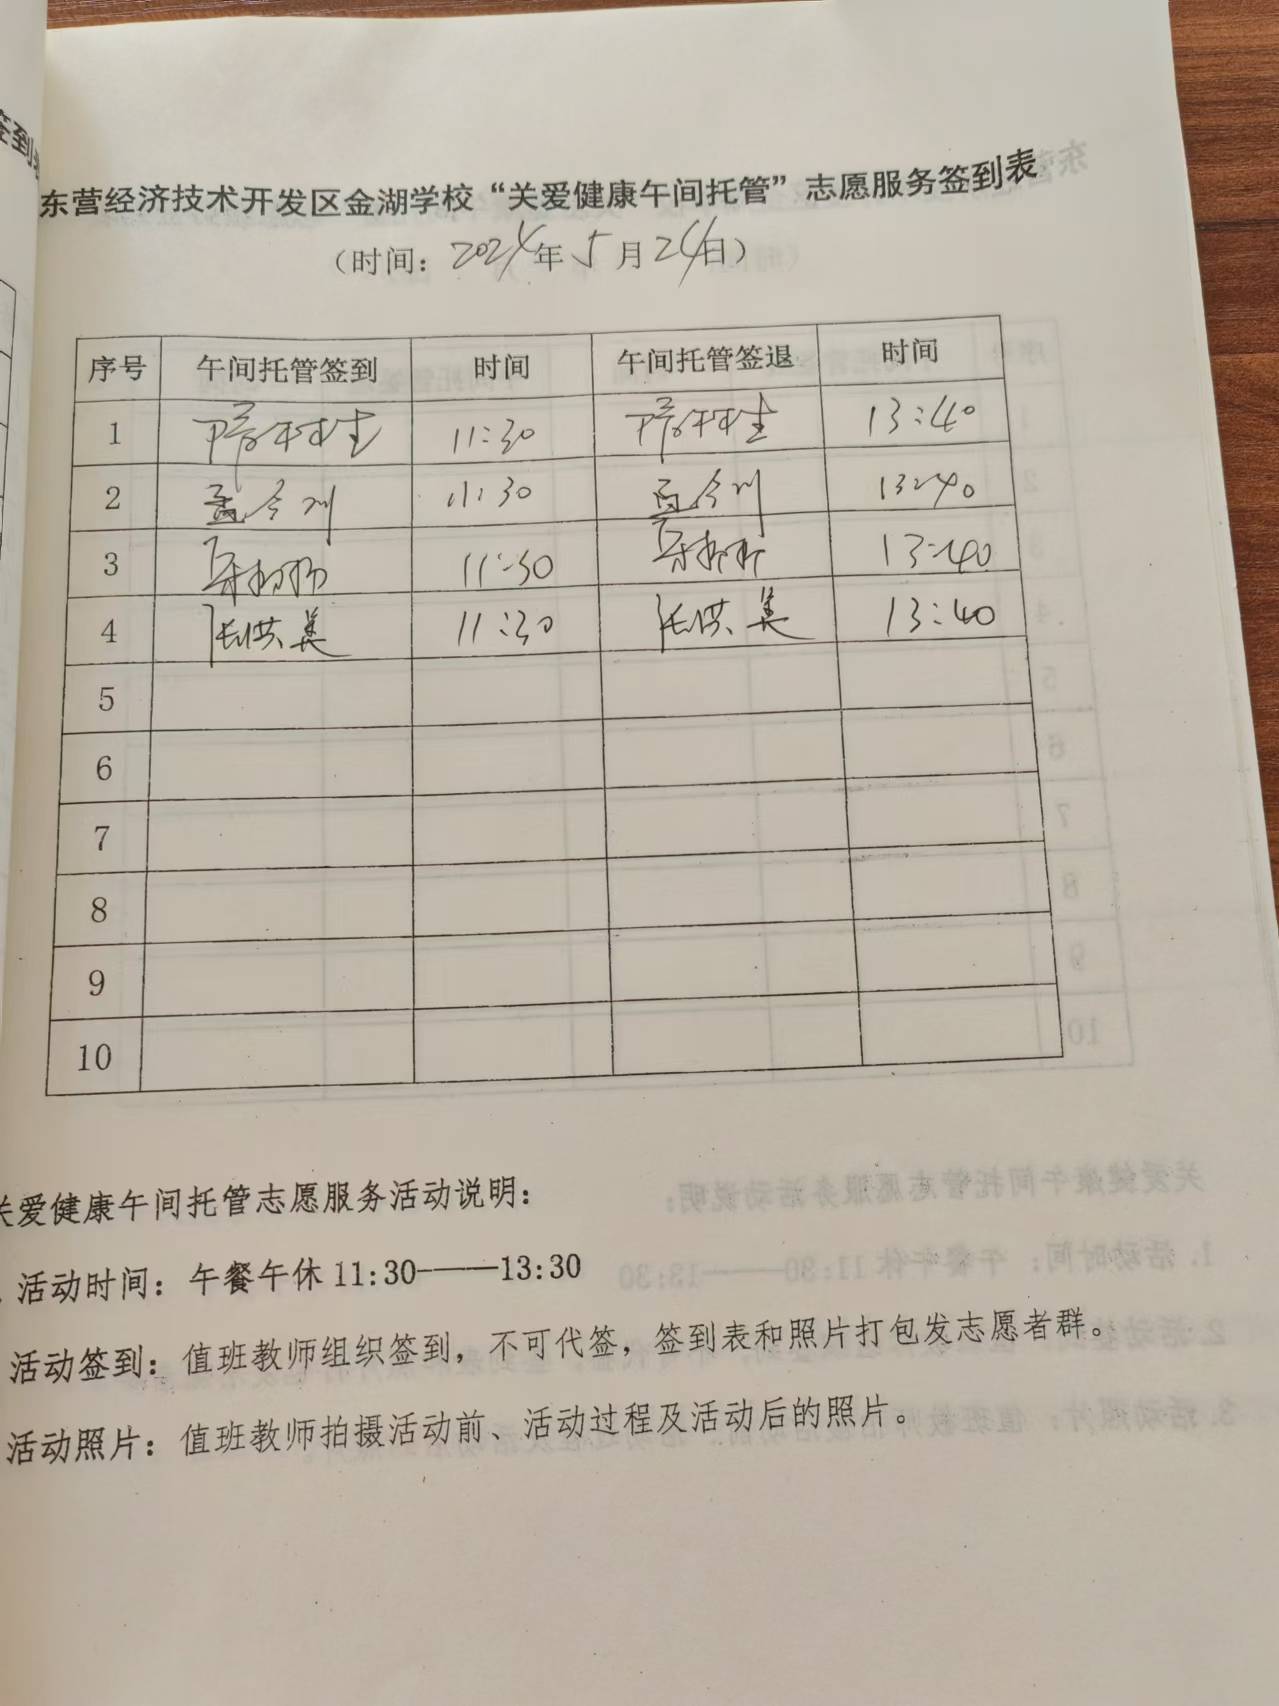 东营经济技术开发区金湖学校“关爱健康午间托管”志愿服务签到表
（时间：2024年5月24日）
序号 午间托管签到 时间 午间托管签退 时间
1 11:30 13:40
2 孟令川 11:30 孟令川 13:40
3 11:30 13:40
4 张洪美 11:30 张洪美 13:40
5
6
7
8
9
10
关爱健康午间托管志愿服务活动说明：
活动时间：午餐午休 11:30——13:30
活动签到：值班教师组织签到，不可代签，签到表和照片打包发志愿者群。
活动照片：值班教师拍摄活动前、活动过程及活动后的照片。